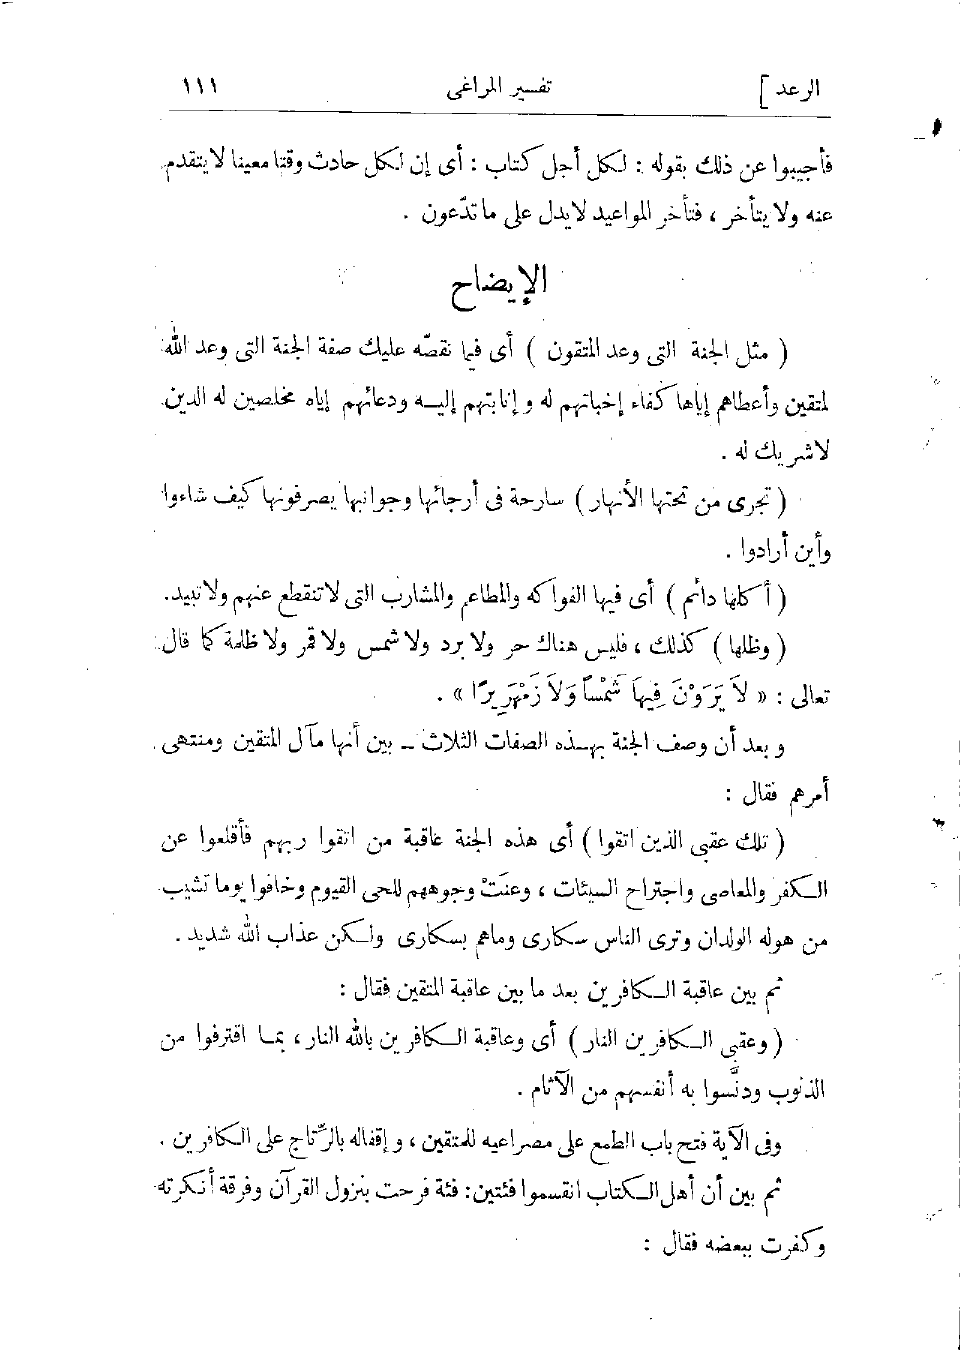 الرعد ] تفسير المراغى ١١١
فأجيبوا عن ذلك بقوله : لكل أجل كتاب : أى إن لكل حادث وقتا معينا لا يتقدم
عنه ولا يتأخر ، فتأخر المواعيد لا يدل على ما تدّعون .
الإيضاح
( مثل الجنة التى وعد المتقون ) أى فيما نقصّه عليك صفة الجنة التى وعد الله
لمتقين وأعطاهم إياها كفاء إخباتهم له وإنابتهم إليه ودعائهم إياه مخلصين له الدين
لاشريك له .
( تجرى من تحتها الأنهار ) سارحة فى أرجائها وجوانبها يصرفونها كيف شاءوا
وأين أرادوا .
( أكلها دائم ) أى فيها الفواكه والمطاعم والمشارب التى لا تنقطع عنهم ولا تبيد.
( وظلها ) كذلك ، فليس هناك حر ولا برد ولا شمس ولا قمر ولا ظلمة كما قال
تعالى : « لاَ يَرَوْنَ فِيهَا شَمْساً وَلاَ زَمْهَرِيرًا » .
وبعد أن وصف الجنة بهذه الصفات الثلاث – بين أنها مآل المتقين ومنتهى
أمرهم فقال :
( تلك عقبى الذين اتقوا ) أى هذه الجنة عاقبة من اتقوا ربهم فأقلعوا عن
الكفر والمعاصى واجتراح السيئات ، وعنَتْ وجوههم للحى القيوم وخافوا يوما تشيب
من هوله الولدان وترى الناس سكارى وماهم بسكارى ولكن عذاب الله شديد .
ثم بين عاقبة الكافرين بعد ما بين عاقبة المتقين فقال :
( وعقبى الكافرين النار ) أى وعاقبة الكافرين بالله النار ، بما اقترفوا من
الذنوب ودنَّسوا به أنفسهم من الآثام .
وفى الآية فتح باب الطمع على مصراعيه للمتقين ، وإقفاله بالرّتاج على الكافرين .
ثم بين أن أهل الكتاب انقسموا فئتين: فئة فرحت بنزول القرآن وفرقة أنكرته
وكفرت ببعضه فقال :